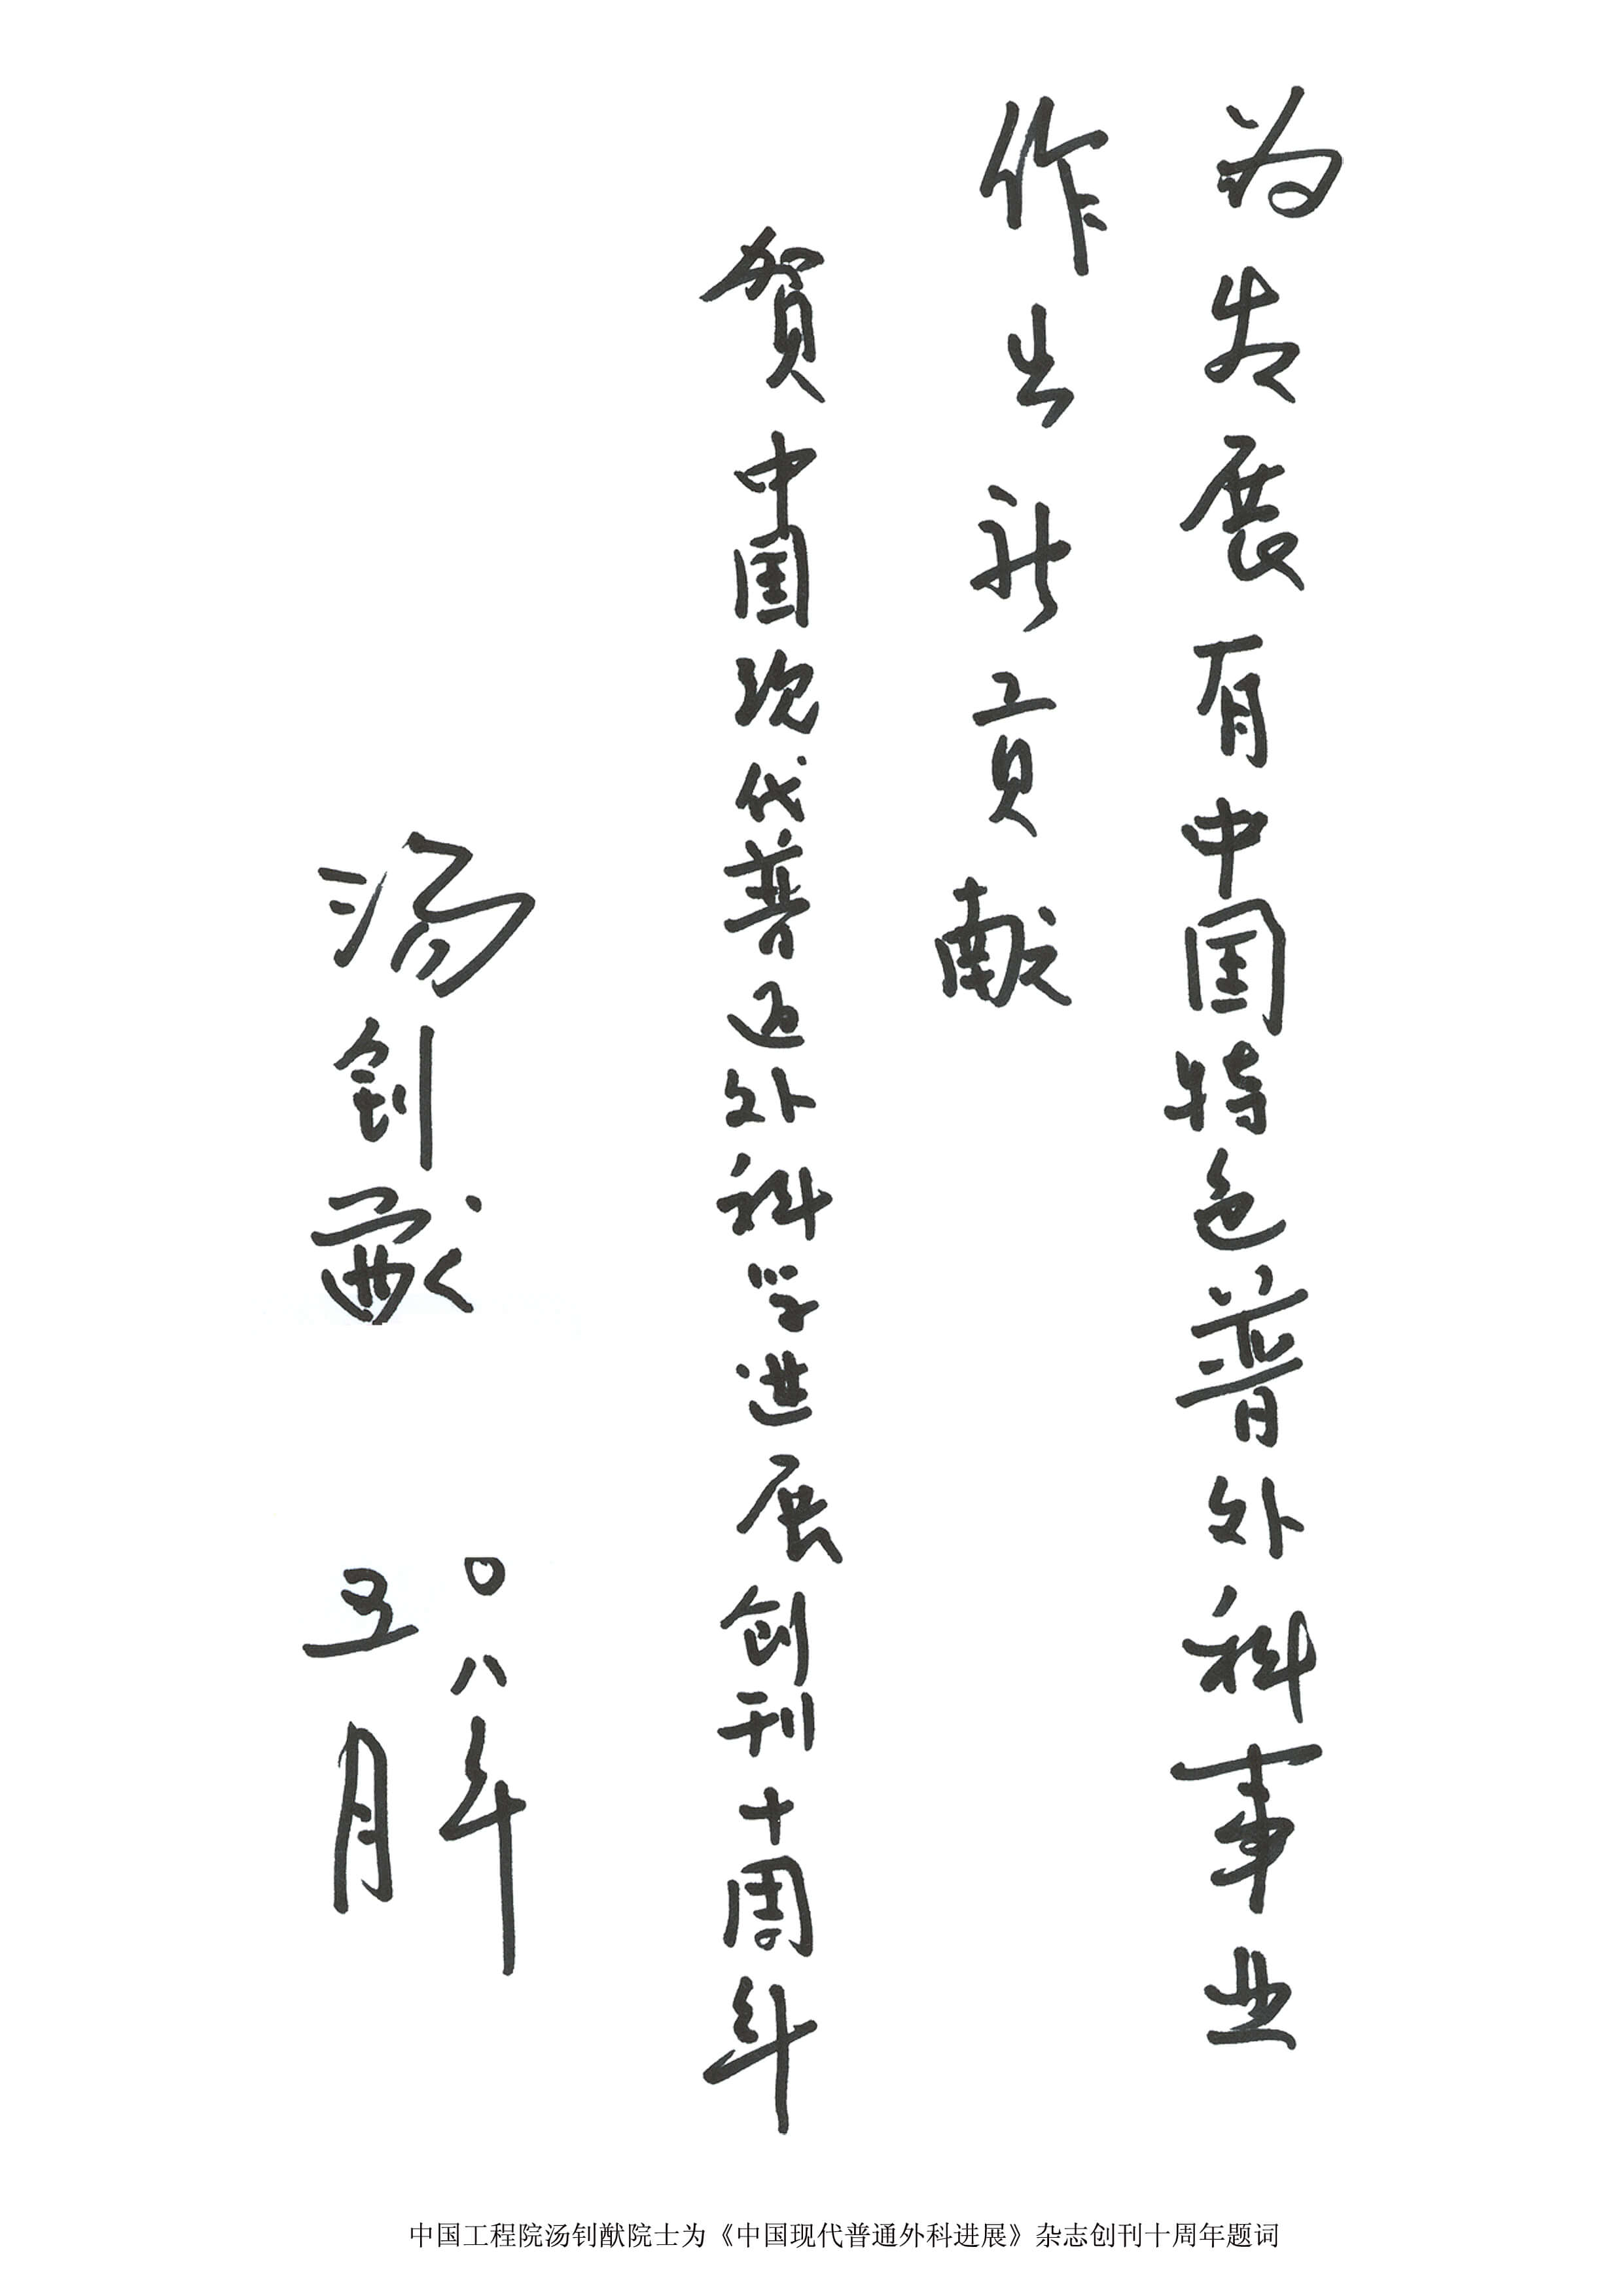 为发展有中国特色普外科事业
作出新贡献
贺中国现代普通外科学进展创刊十周年
汤钊猷
〇八年
五月
中国工程院汤钊猷院士为《中国现代普通外科进展》杂志创刊十周年题词